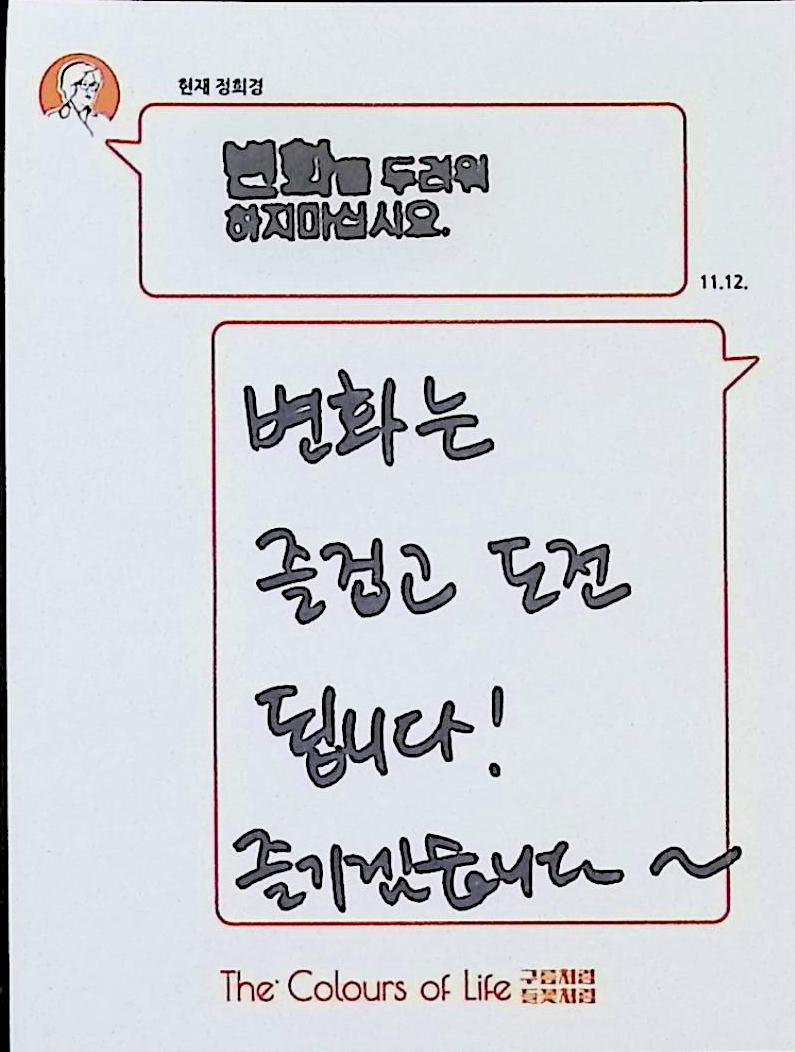 현재 정희경
변화를 두려워
하지마십시오.
11.12.
변화는
즐겁고 도전
됩니다!
즐기겠습니다~
The Colours of Life 구름처럼
들꽃처럼